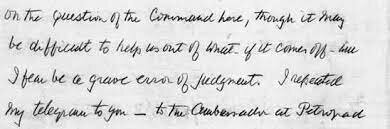 on the question of the Command here, though it may
be difficult to help us out of what if it comes off – will
I fear be a grave error of judgment. I repeated
my telegram to you – to the Ambassador at Petrograd